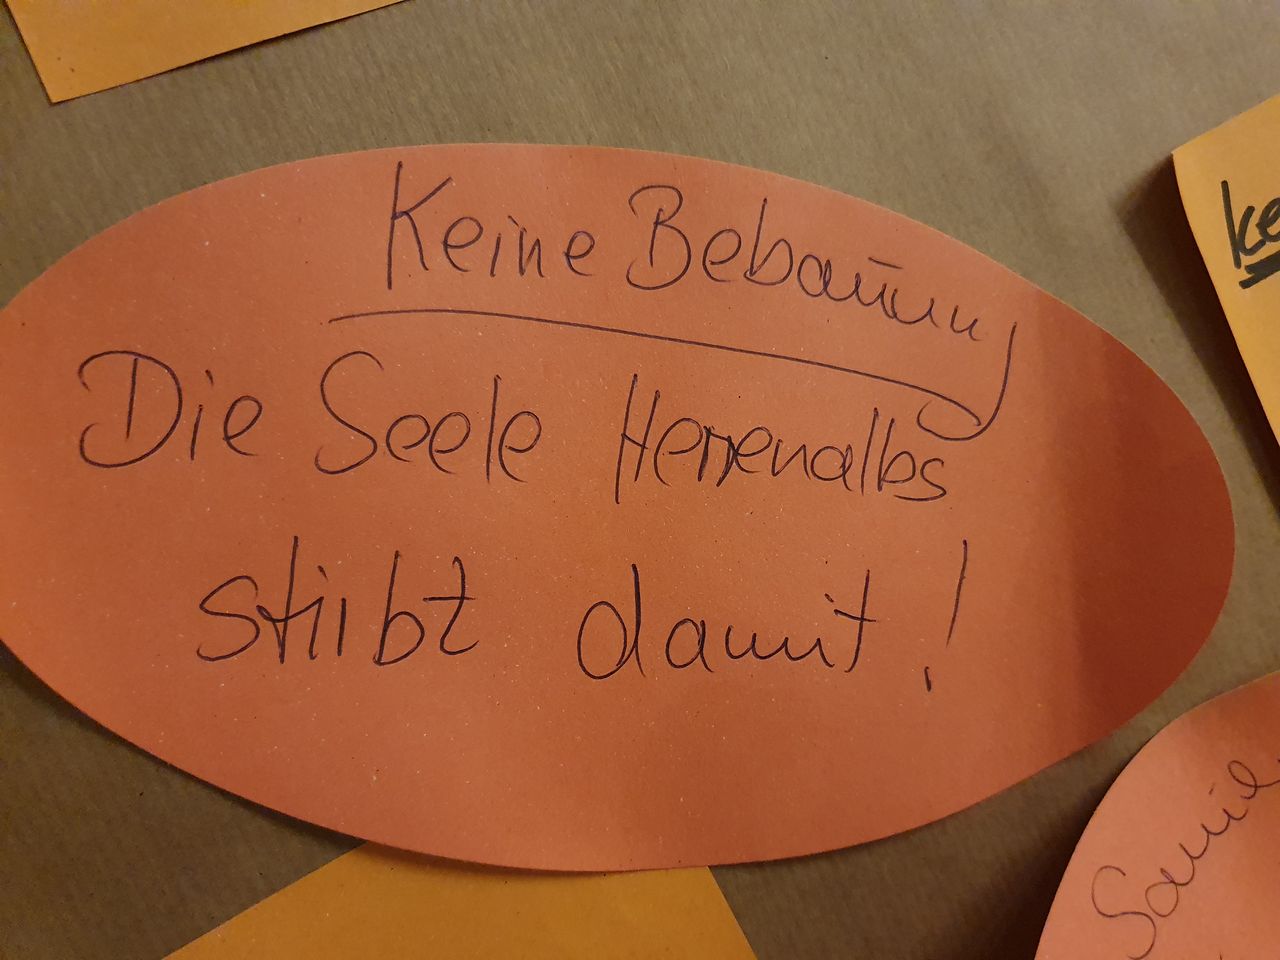 Keine Bebauung
Die Seele Herrenalbs
stirbt damit!